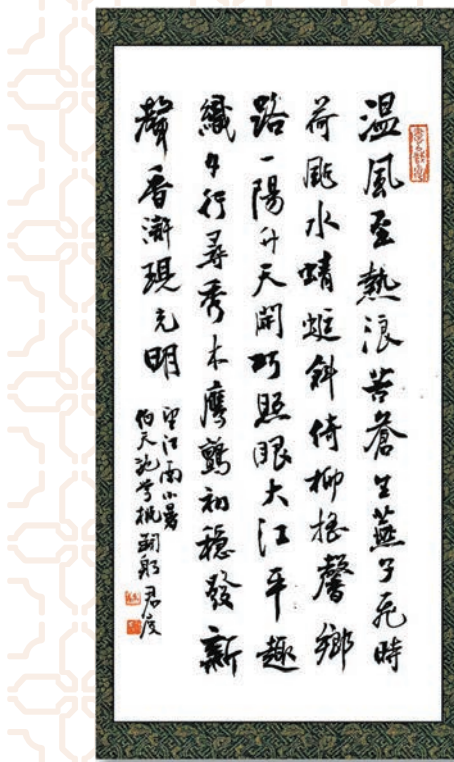 温風至熱浪苦蒼生燕子飛時
荷颭水蜻蜓斜倚柳搖馨鄉
路一陽升天開巧照眼大江平趣
織女行尋秀木鷹鷙初穩發新
聲香澥現元明
望江南小暑
伯天池学挑 君度